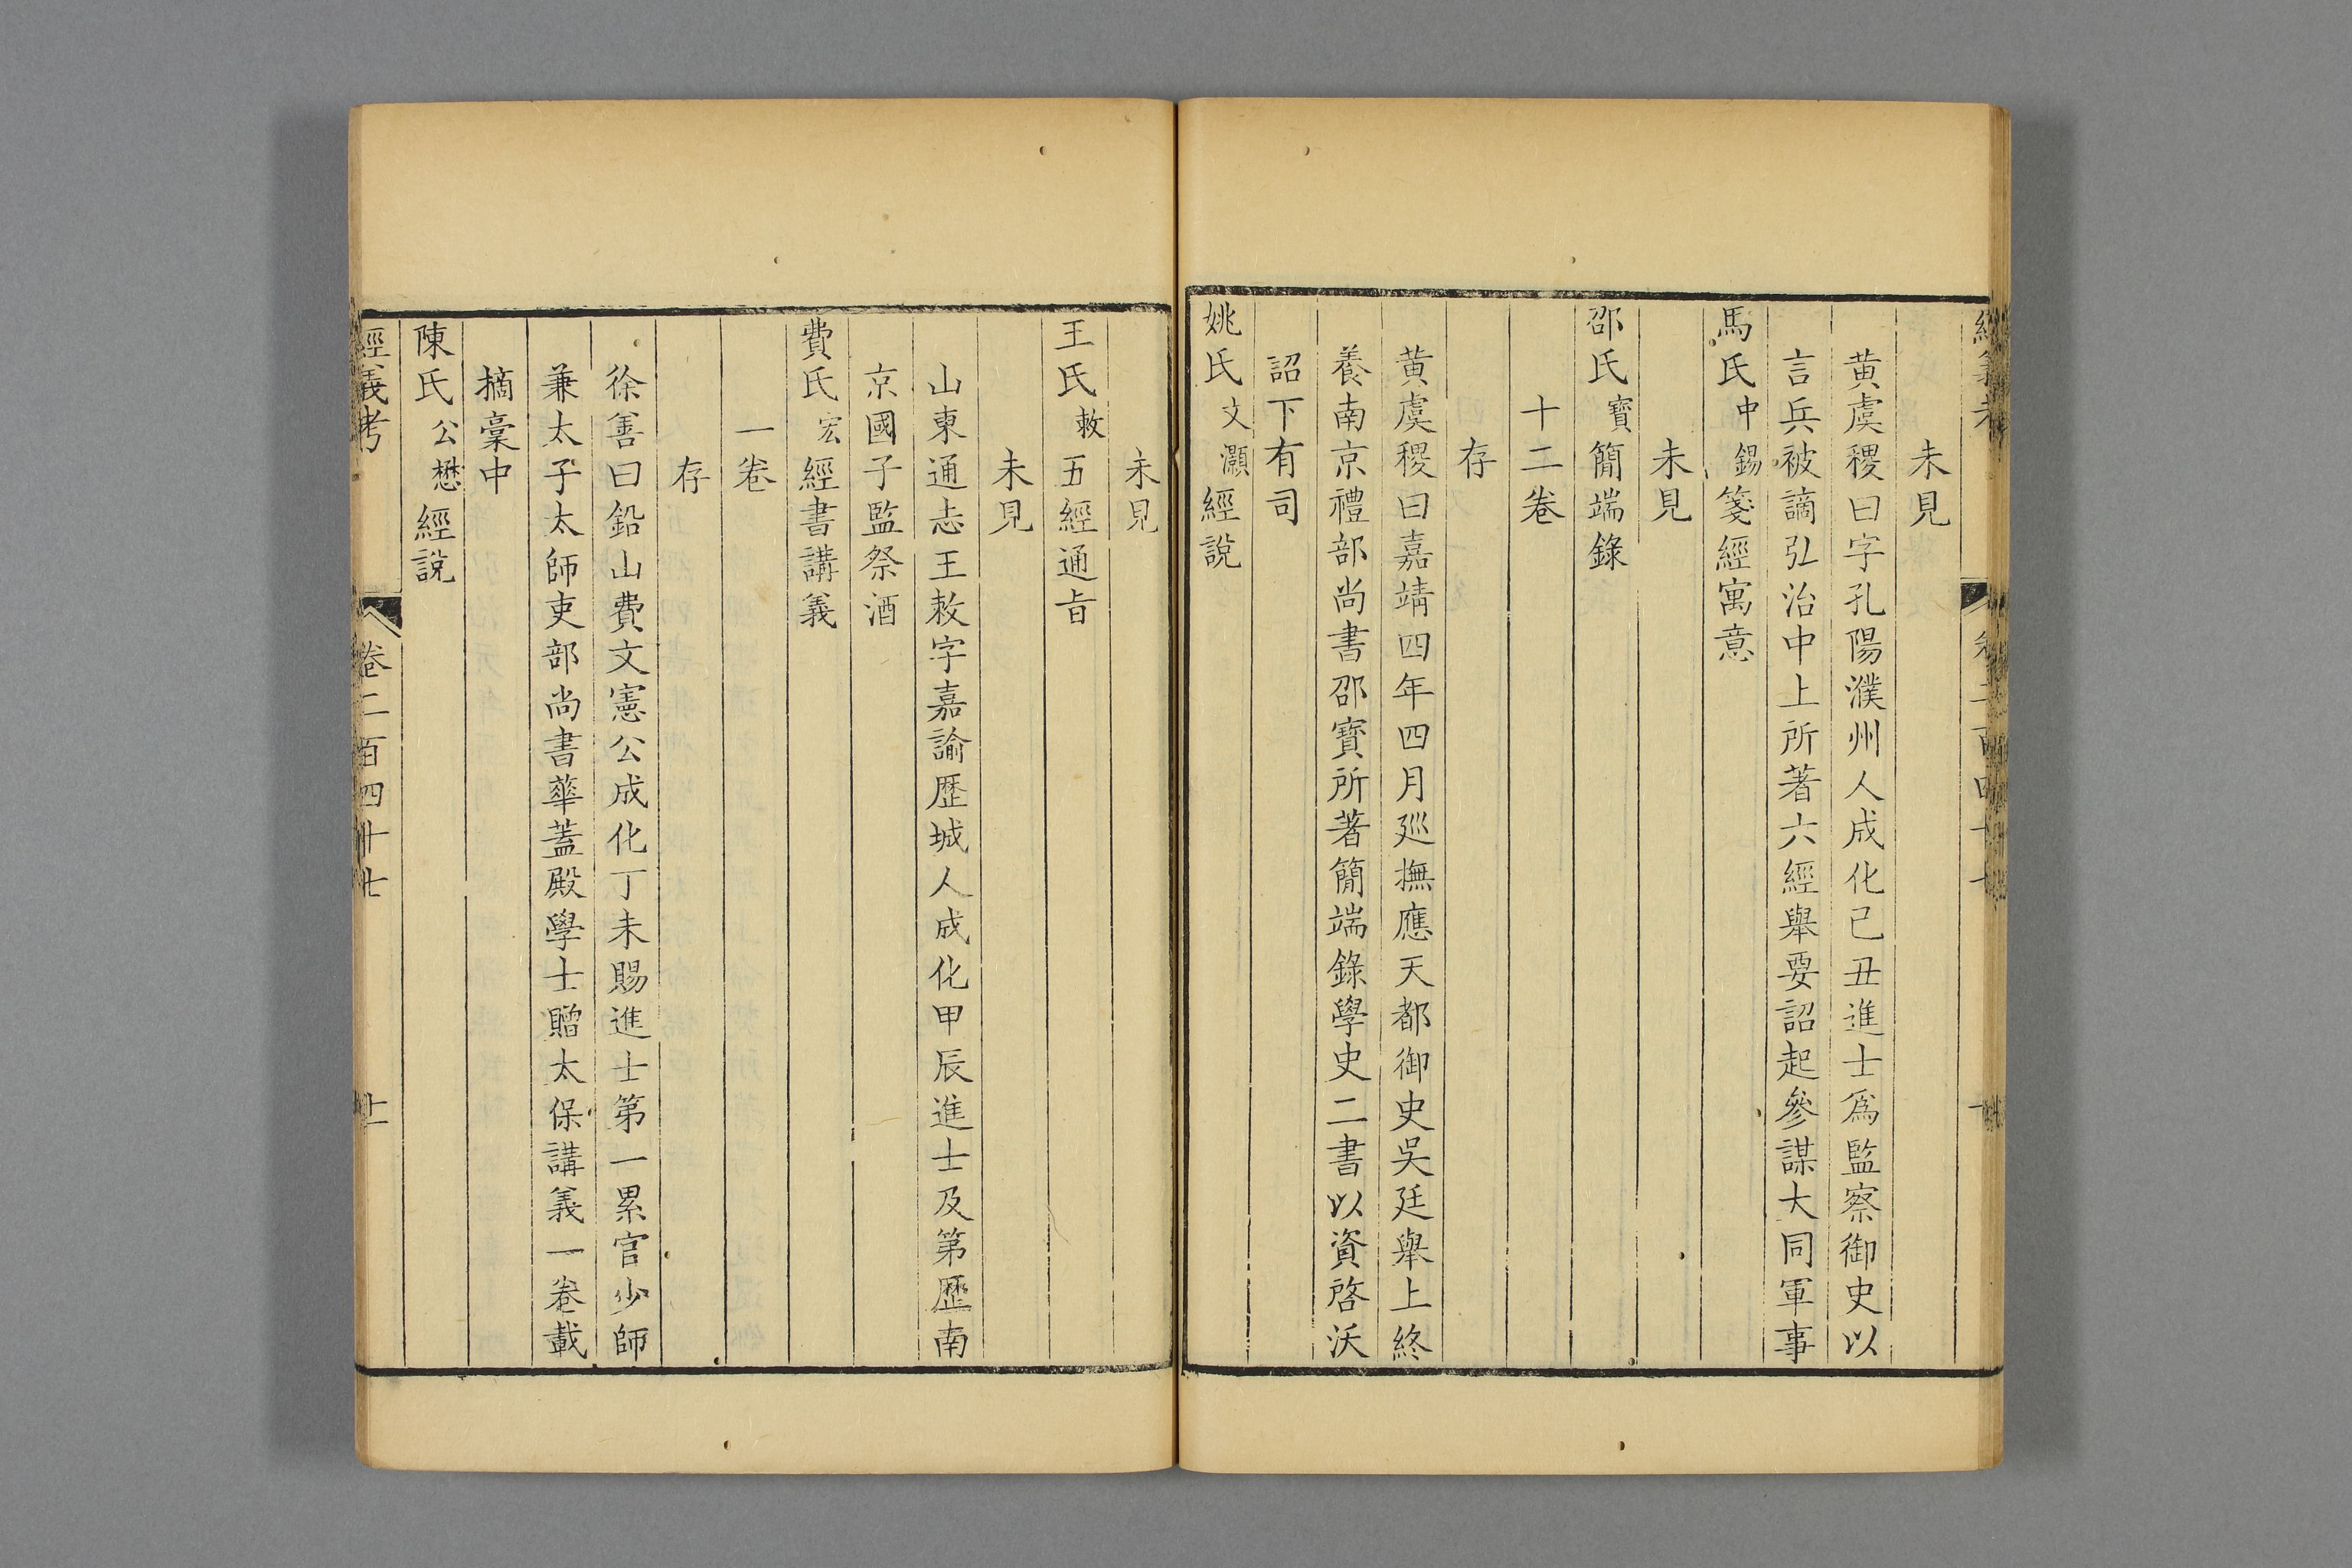 未見
黄虞稷曰字孔陽濮州人成化己丑進士爲監察御史以
言兵被謫弘治中上所著六經舉要詔起參謀大同軍事
馬氏中錫箋經寓意
未見
邵氏寳簡端錄
十二卷
存
黄虞稷曰嘉靖四年四月廵撫應天都御史吳廷舉上終
養南京禮部尚書邵寳所著簡端錄學史二書以資啓沃
詔下有司
姚氏文灝經說
未見
王氏敕五經通旨
未見
山東通志王敕字嘉諭歷城人成化甲辰進士及第歷南
京國子監祭酒
費氏宏經書講義
一卷
存
徐善曰鉛山費文憲公成化丁未賜進士第一累官少師
兼太子太師吏部尚書華蓋殿學士贈太保講義一卷載
摘稾中
陳氏公懋經說
經義考 卷二百四十七 十一